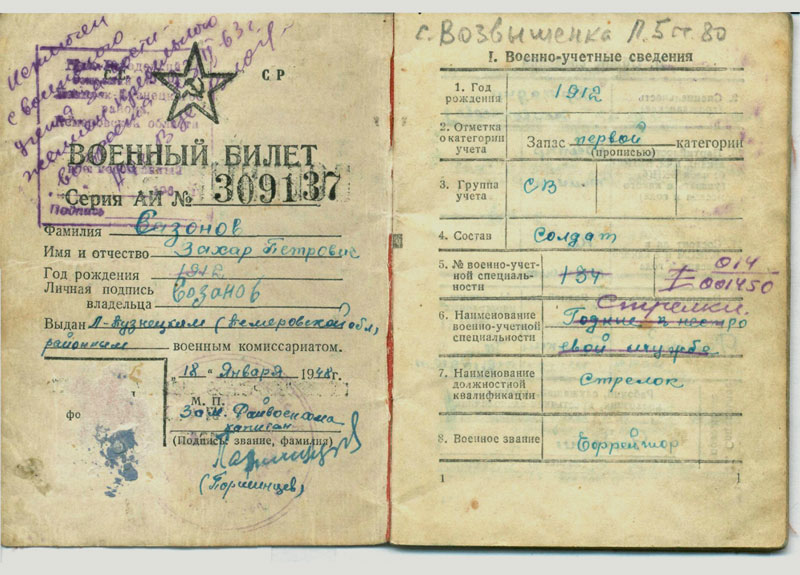 Исключен
с воинского
учета
СС СР
ВОЕННЫЙ БИЛЕТ
Серия АИ № 309137
Подпись
Фамилия Сазонов
Имя и отчество Захар Петрович
Год рождения 1912
Личная подпись
владельца Созанов
Выдан Л-Кузнецким (Кемеровской обл.)
районным военным комиссариатом.
„18" Января 1948 г.
М. П.
фо
Зам. Райвоенкома
капитан
(Подпись, звание, фамилия)
(Поршинцев)
с. Возвышенка Л.5 ст. 80
I. Военно-учетные сведения
1. Год
рождения 1912
2. Отметка
о категории
учета Запас первой категории
(прописью)
3. Группа
учета СВ
4. Состав Солдат
5. № военно-учет-
ной специаль-
ности 134 014
001450
Стрелки.
6. Наименование
военно-учетной
специальности Годные к нестро
евой службе
7. Наименование
должностной
квалификации Стрелок
8. Военное звание Ефрейтор
1 1